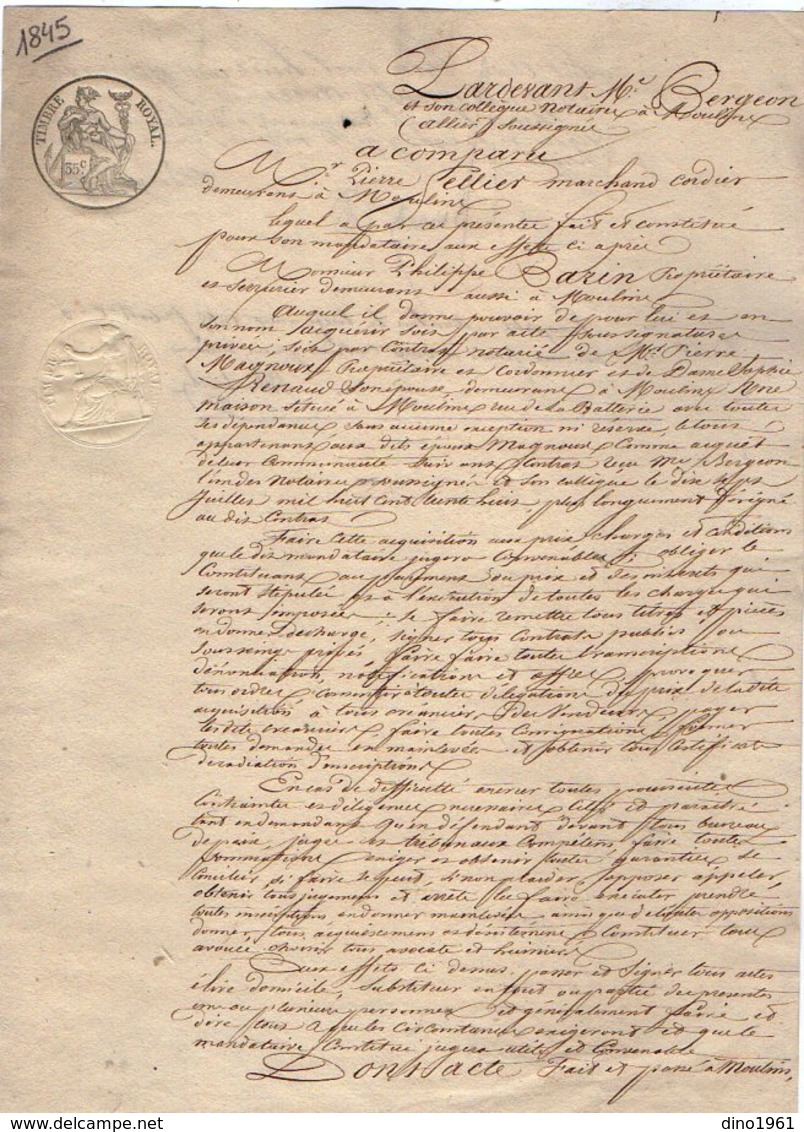 1845
TIMBRE ROYAL.
35c
Pardevant Me. Bergeon
et son collègue notaires à Moulins
(Allier) soussignés
a comparu
Mr. Pierre Tellier marchand cordier
demeurant à Moulins
lequel a par ces présentes fait et constitué
pour son mandataire aux effets ci après
Monsieur Philippe Barin Propriétaire
et serrurier demeurant aussi à Moulins
Auquel il donne pouvoir de pour lui et en
son nom acquérir soit par acte sous signatures
privées, soit par contrat notarié de Mr. Pierre
Magnoux Propriétaire et Cordonnier et de Dame Sophie
Renaud son épouse, demeurant à Moulins Une
maison située à Moulins rue de la Batterie avec toutes
ses dépendances sans aucune exception ni réserve, le tout
appartenant aux dits époux Magnoux comme acquêt
de leur communauté suivant contrat reçu Me Bergeon
l'un des Notaires soussignés et son collègue le dix sept
juillet mil huit cent trente huit plus longuement désigné
au dit contrat
Faire cette acquisition aux prix, charges et conditions
que le dit mandataire jugera convenables, obliger le
Constituant au payement du prix et des intérêts qui
seront stipulés et à l'exécution de toutes les charges qui
seront imposées; se faire remettre tous titres et pièces
en donner décharge, signer tous contrats publics ou
sousseings privés, faire faire toutes transcriptions
dénonciation, notifications et offres, provoquer
tous ordres, consentir à toutes délégations du prix de la dite
acquisition à tous créanciers des vendeurs, payer
les dits créanciers, faire toutes consignations, former
toutes demandes en mainlevées et obtenir tous certificats
de radiation d'inscriptions
En cas de difficulté exercer toutes poursuites
contraintes et diligences nécessaires, citer et paraître
tant en demandant qu'en défendant devant tous bureaux
de paix, juges et tribunaux compétens, faire toutes
sommations, exiger et obtenir toutes garanties, se
concilier, si faire se peut, sinon plaider, s'opposer appeler,
obtenir tous jugemens et arrêts les faire exécuter prendre
toutes inscriptions, en donner mainlevée ainsi que de toutes oppositions
donner tous acquiescemens et désistemens, Constituer tous
avoués, choisir tous avocats et huissiers
Aux effets ci dessus, passer et signer tous actes
élire domicile, substituer en tout ou partie des présentes
une ou plusieurs personnes et généralement faire et
dire tous ce que les circonstances exigeront et que le
mandataire constitué jugera utile et convenable
Dont acte Fait et passé à Moulins,
dino1961